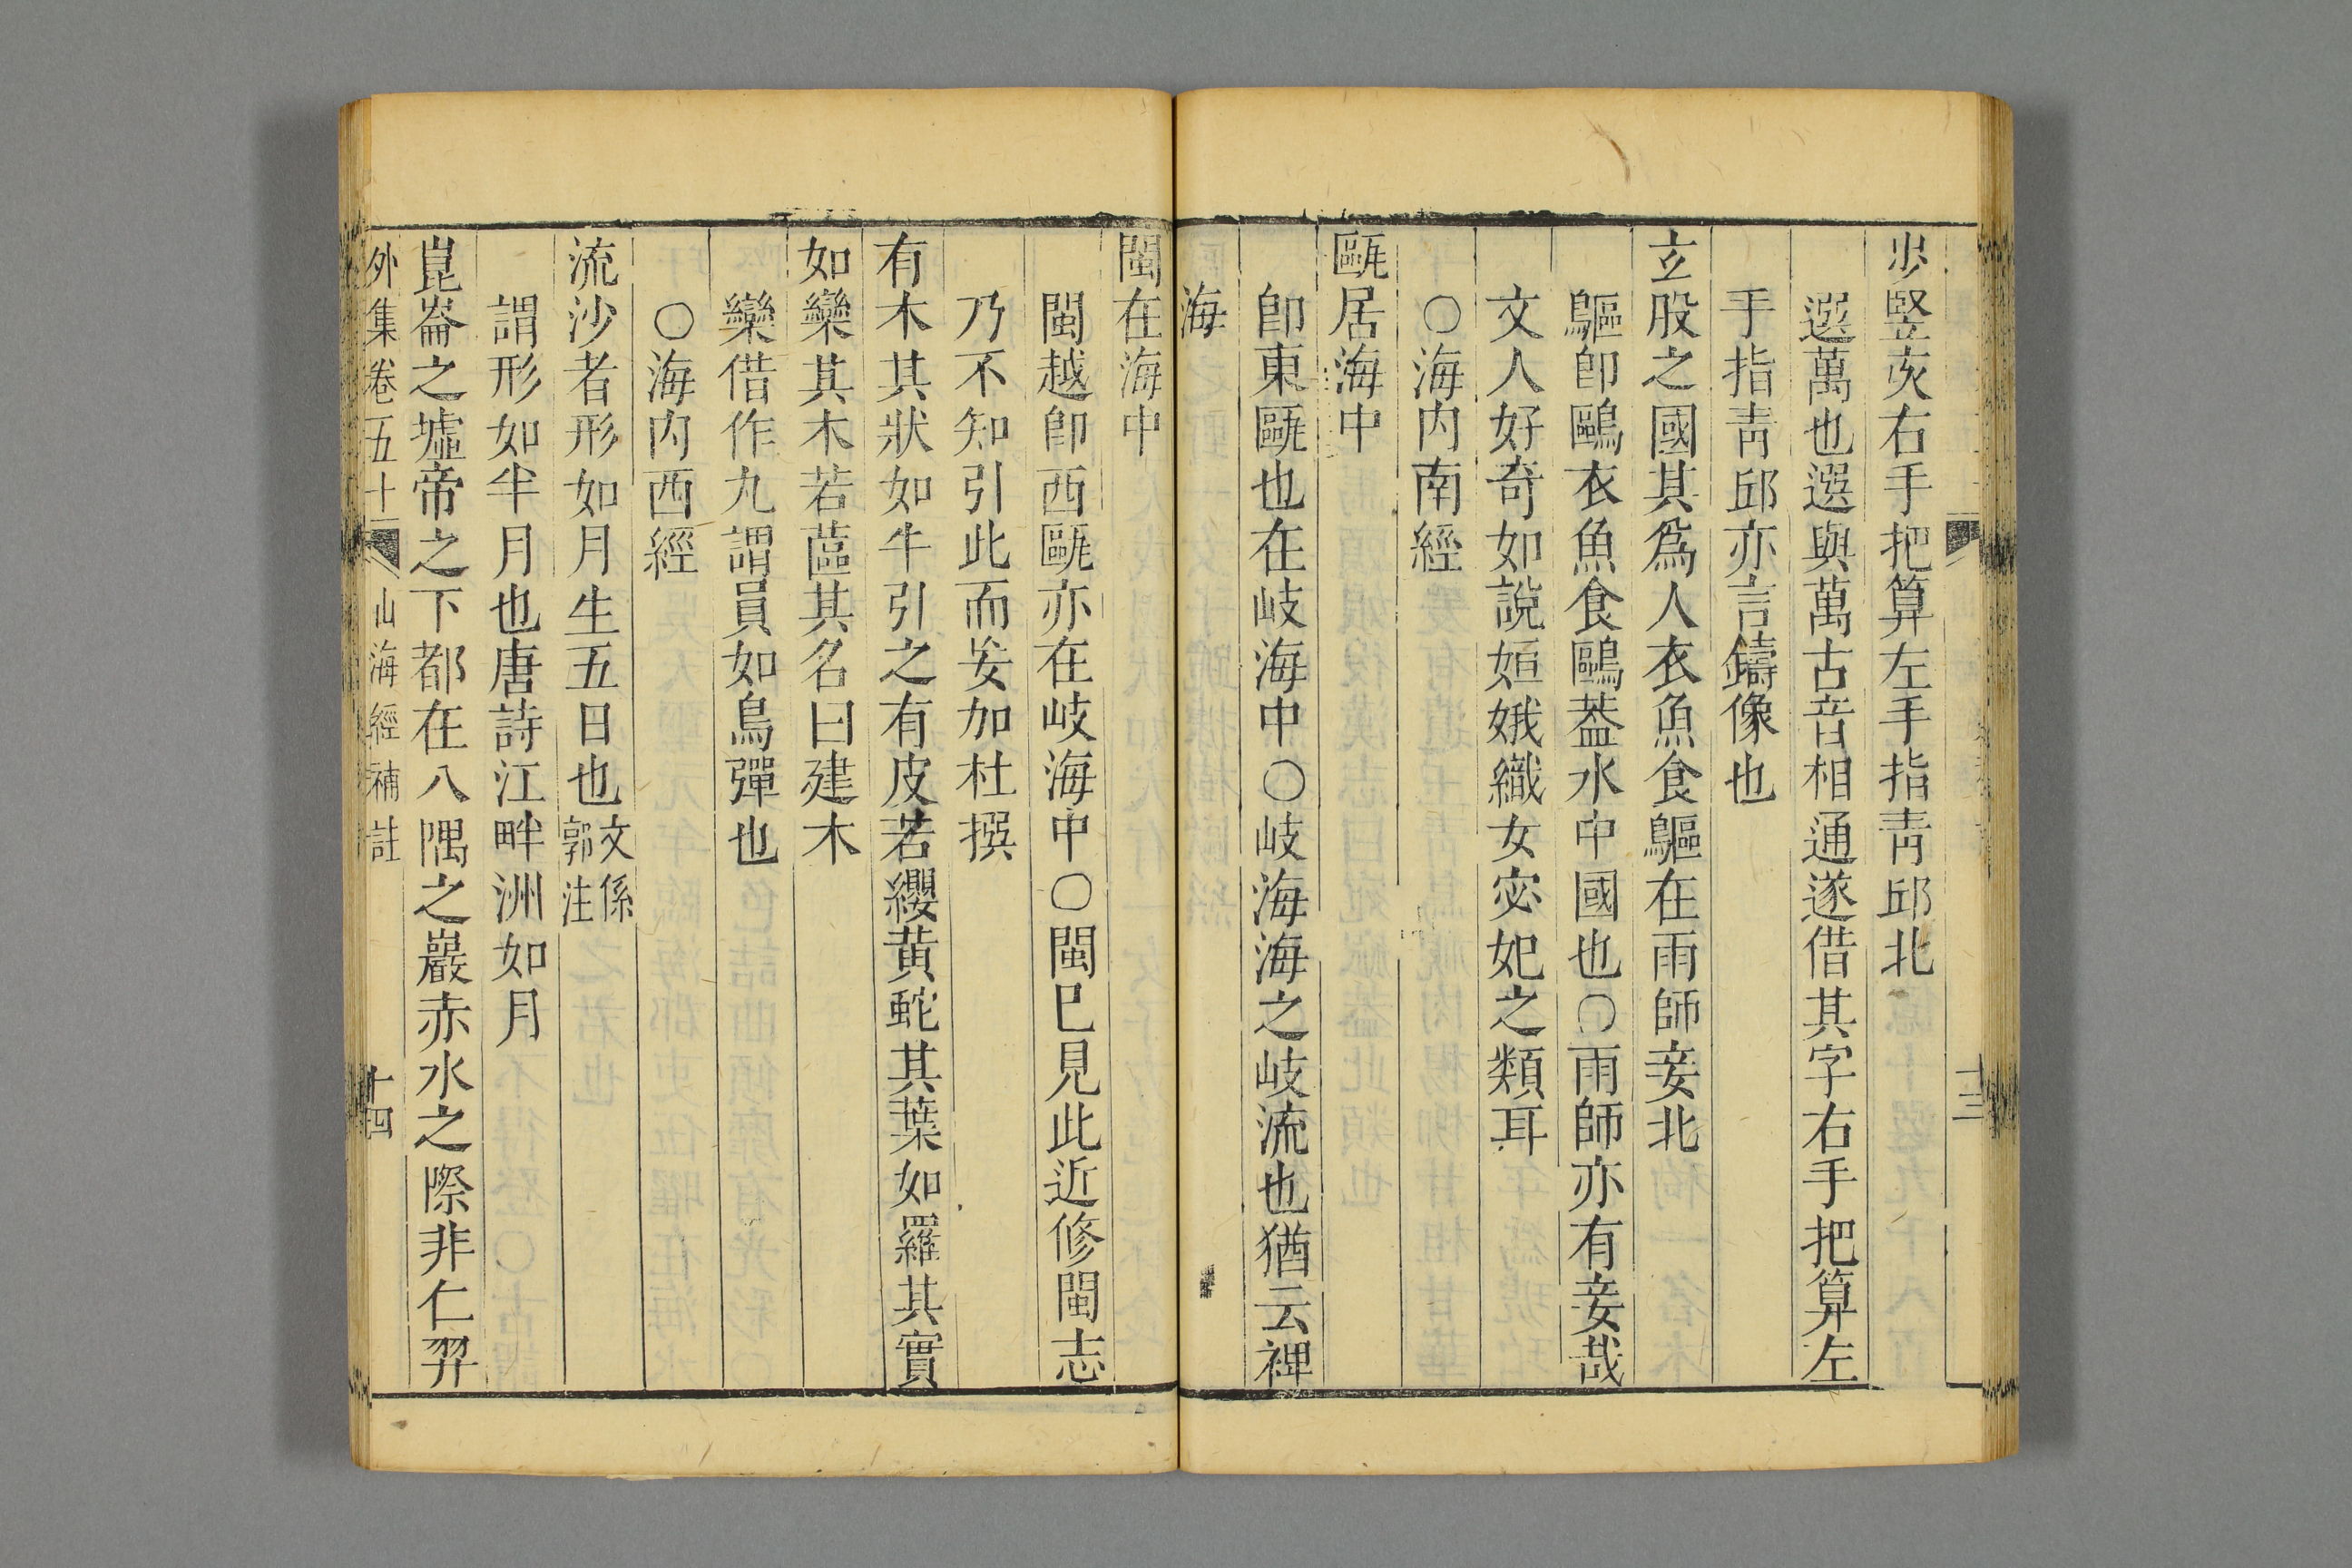 步豎亥右手把算左手指靑邱北
選萬也選與萬古音相通遂借其字右手把算左
手指靑邱亦言鑄像也
玄股之國其爲人衣魚食䳼在雨師妾北
䳼卽鷗衣魚食鷗葢水中國也〇雨師亦有妾哉
文人好奇如說姮娥織女宓妃之類耳
〇海内南經
甌居海中
卽東甌也在岐海中〇岐海海之岐流也猶云裨
海
閩在海中
閩越卽西甌亦在岐海中〇閩已見此近修閩志
乃不知引此而妄加杜撰
有木其狀如牛引之有皮若纓黃蛇其葉如羅其實
如欒其木若蓲其名曰建木
欒借作丸謂員如鳥彈也
〇海内西經
流沙者形如月生五日也文係郭注
謂形如半月也唐詩江畔洲如月
崑崙之墟帝之下都在八隅之巖赤水之際非仁羿
外集卷五十 山海經補註 十四
十三